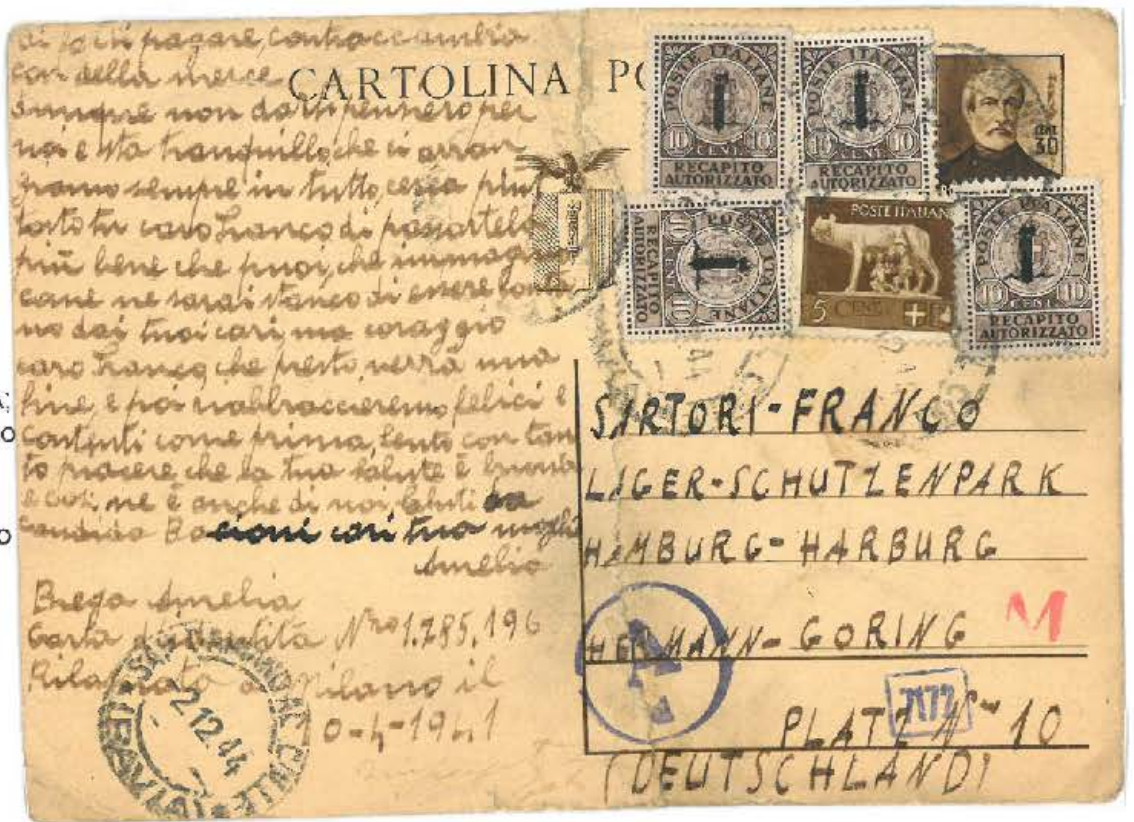 di farti pagare, contraccambia
con della merce
dunque non darti pensiero per
noi e sta tranquillo, che ci arran
giamo sempre in tutto, cerca piut
tosto tu caro Franco di passartela
più bene che puoi, che immagi
ne sarai stanco di essere lonta
no dai tuoi cari, ma coraggio
caro Franco, che presto verrà una
fine, e poi riabbracceremo felici e
contenti come prima, sento con tan
to piacere che la tua salute è buona
e così ne è anche di noi, saluti da
Bacioni cari tua moglie
Amelia
Brega Amelia
Carta d'identità Nro 1.785.196
Rilasciata a Milano il
10-4-1941
2.12.44
(PAVIA)
CARTOLINA PO
POSTE ITALIANE
10 CENT. 10
RECAPITO
AUTORIZZATO
POSTE ITALIANE
10 CENT. 10
RECAPITO
AUTORIZZATO
CENT
30
POSTE ITALIANE
10 CENT. 10
RECAPITO
AUTORIZZATO
POSTE ITALIAN
5 CENT
POSTE ITALIANE
10 CENT. 10
RECAPITO
AUTORIZZATO
SARTORI-FRANCO
LAGER-SCHUTZENPARK
HAMBURG-HARBURG
HERMANN-GORING
M
A
a
7172
PLATZ N° 10
(DEUTSCHLAND)